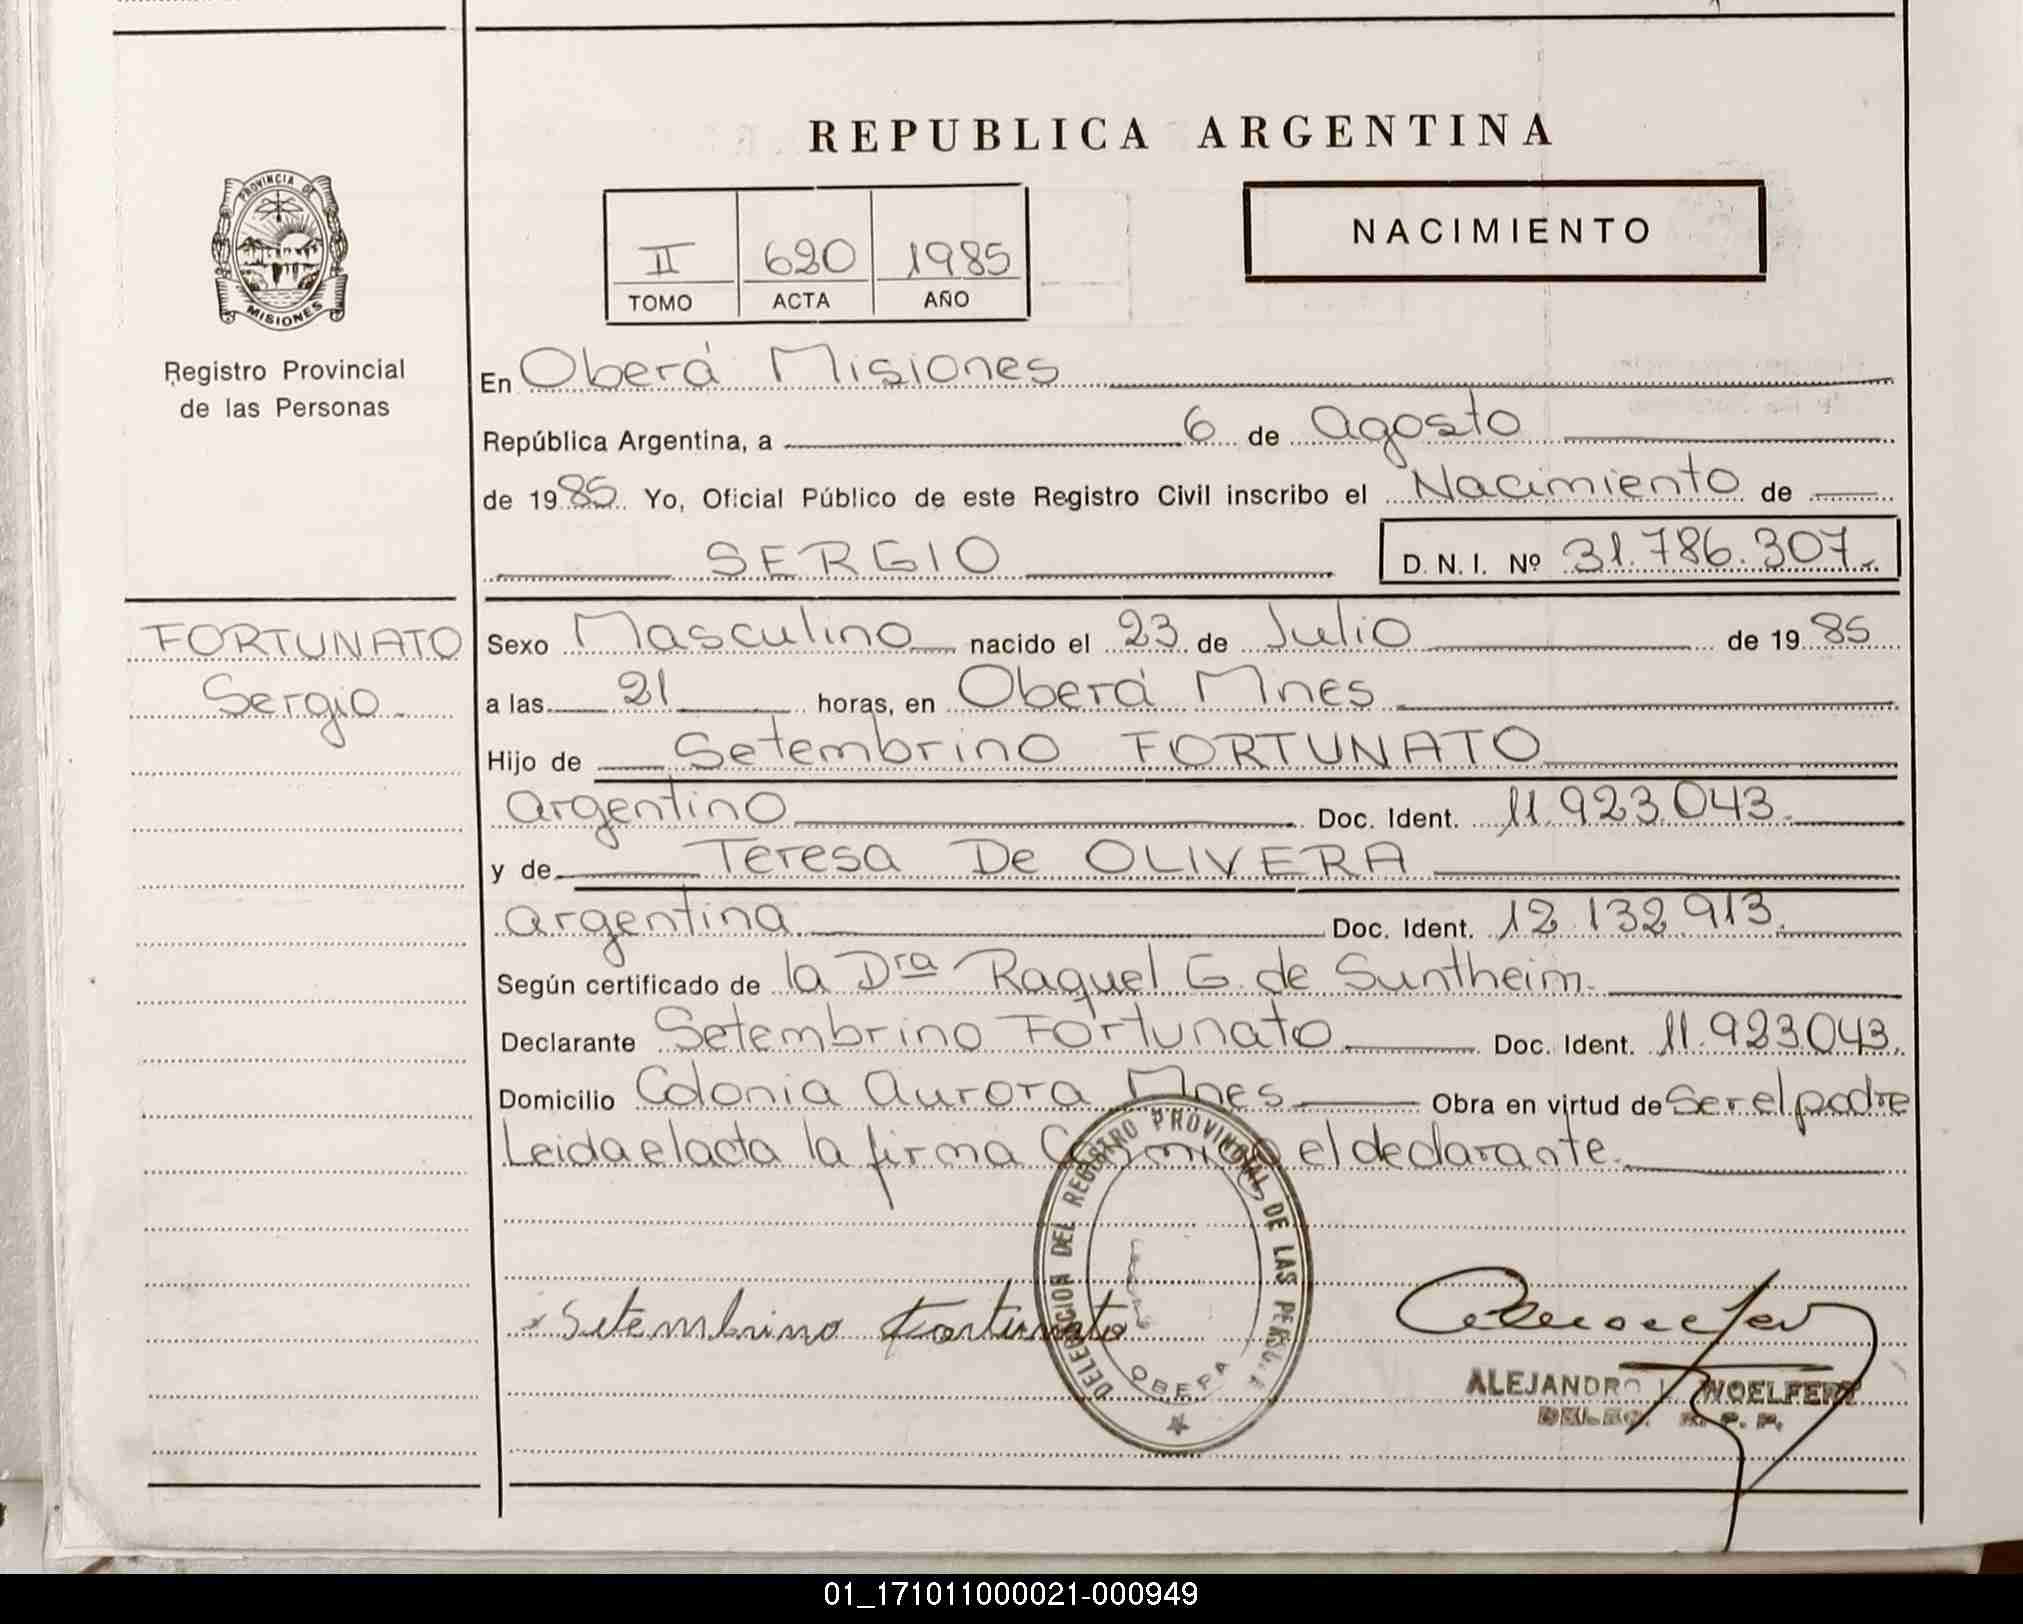 REPUBLICA ARGENTINA
PROVINCIA DE
MISIONES
Registro Provincial
de las Personas
II 620 1985
TOMO ACTA AÑO
NACIMIENTO
En Oberá Misiones
República Argentina, a 6 de Agosto
de 1985. Yo, Oficial Público de este Registro Civil inscribo el Nacimiento de
SERGIO
D. N. I. Nº 31.786.307.
FORTUNATO
Sergio
Sexo Masculino nacido el 23 de Julio de 1985
a las 21 horas, en Oberá Mnes
Hijo de Setembrino FORTUNATO
argentino Doc. Ident. 11.923.043.
y de Teresa De OLIVERA
argentina Doc. Ident. 12.132.913.
Según certificado de la Dra Raquel G. de Suntheim.
Declarante Setembrino Fortunato Doc. Ident. 11.923.043.
Domicilio Colonia Aurora Mnes Obra en virtud de Ser el padre
Leida el acta la firma Conmigo el declarante.
DELEGACION DEL REGISTRO PROVINCIAL DE LAS PERSONAS
OBERA
Setembrino Fortunato
ALEJANDRO L. WOELFERT
DELEG. R. P. P.
01_171011000021-000949